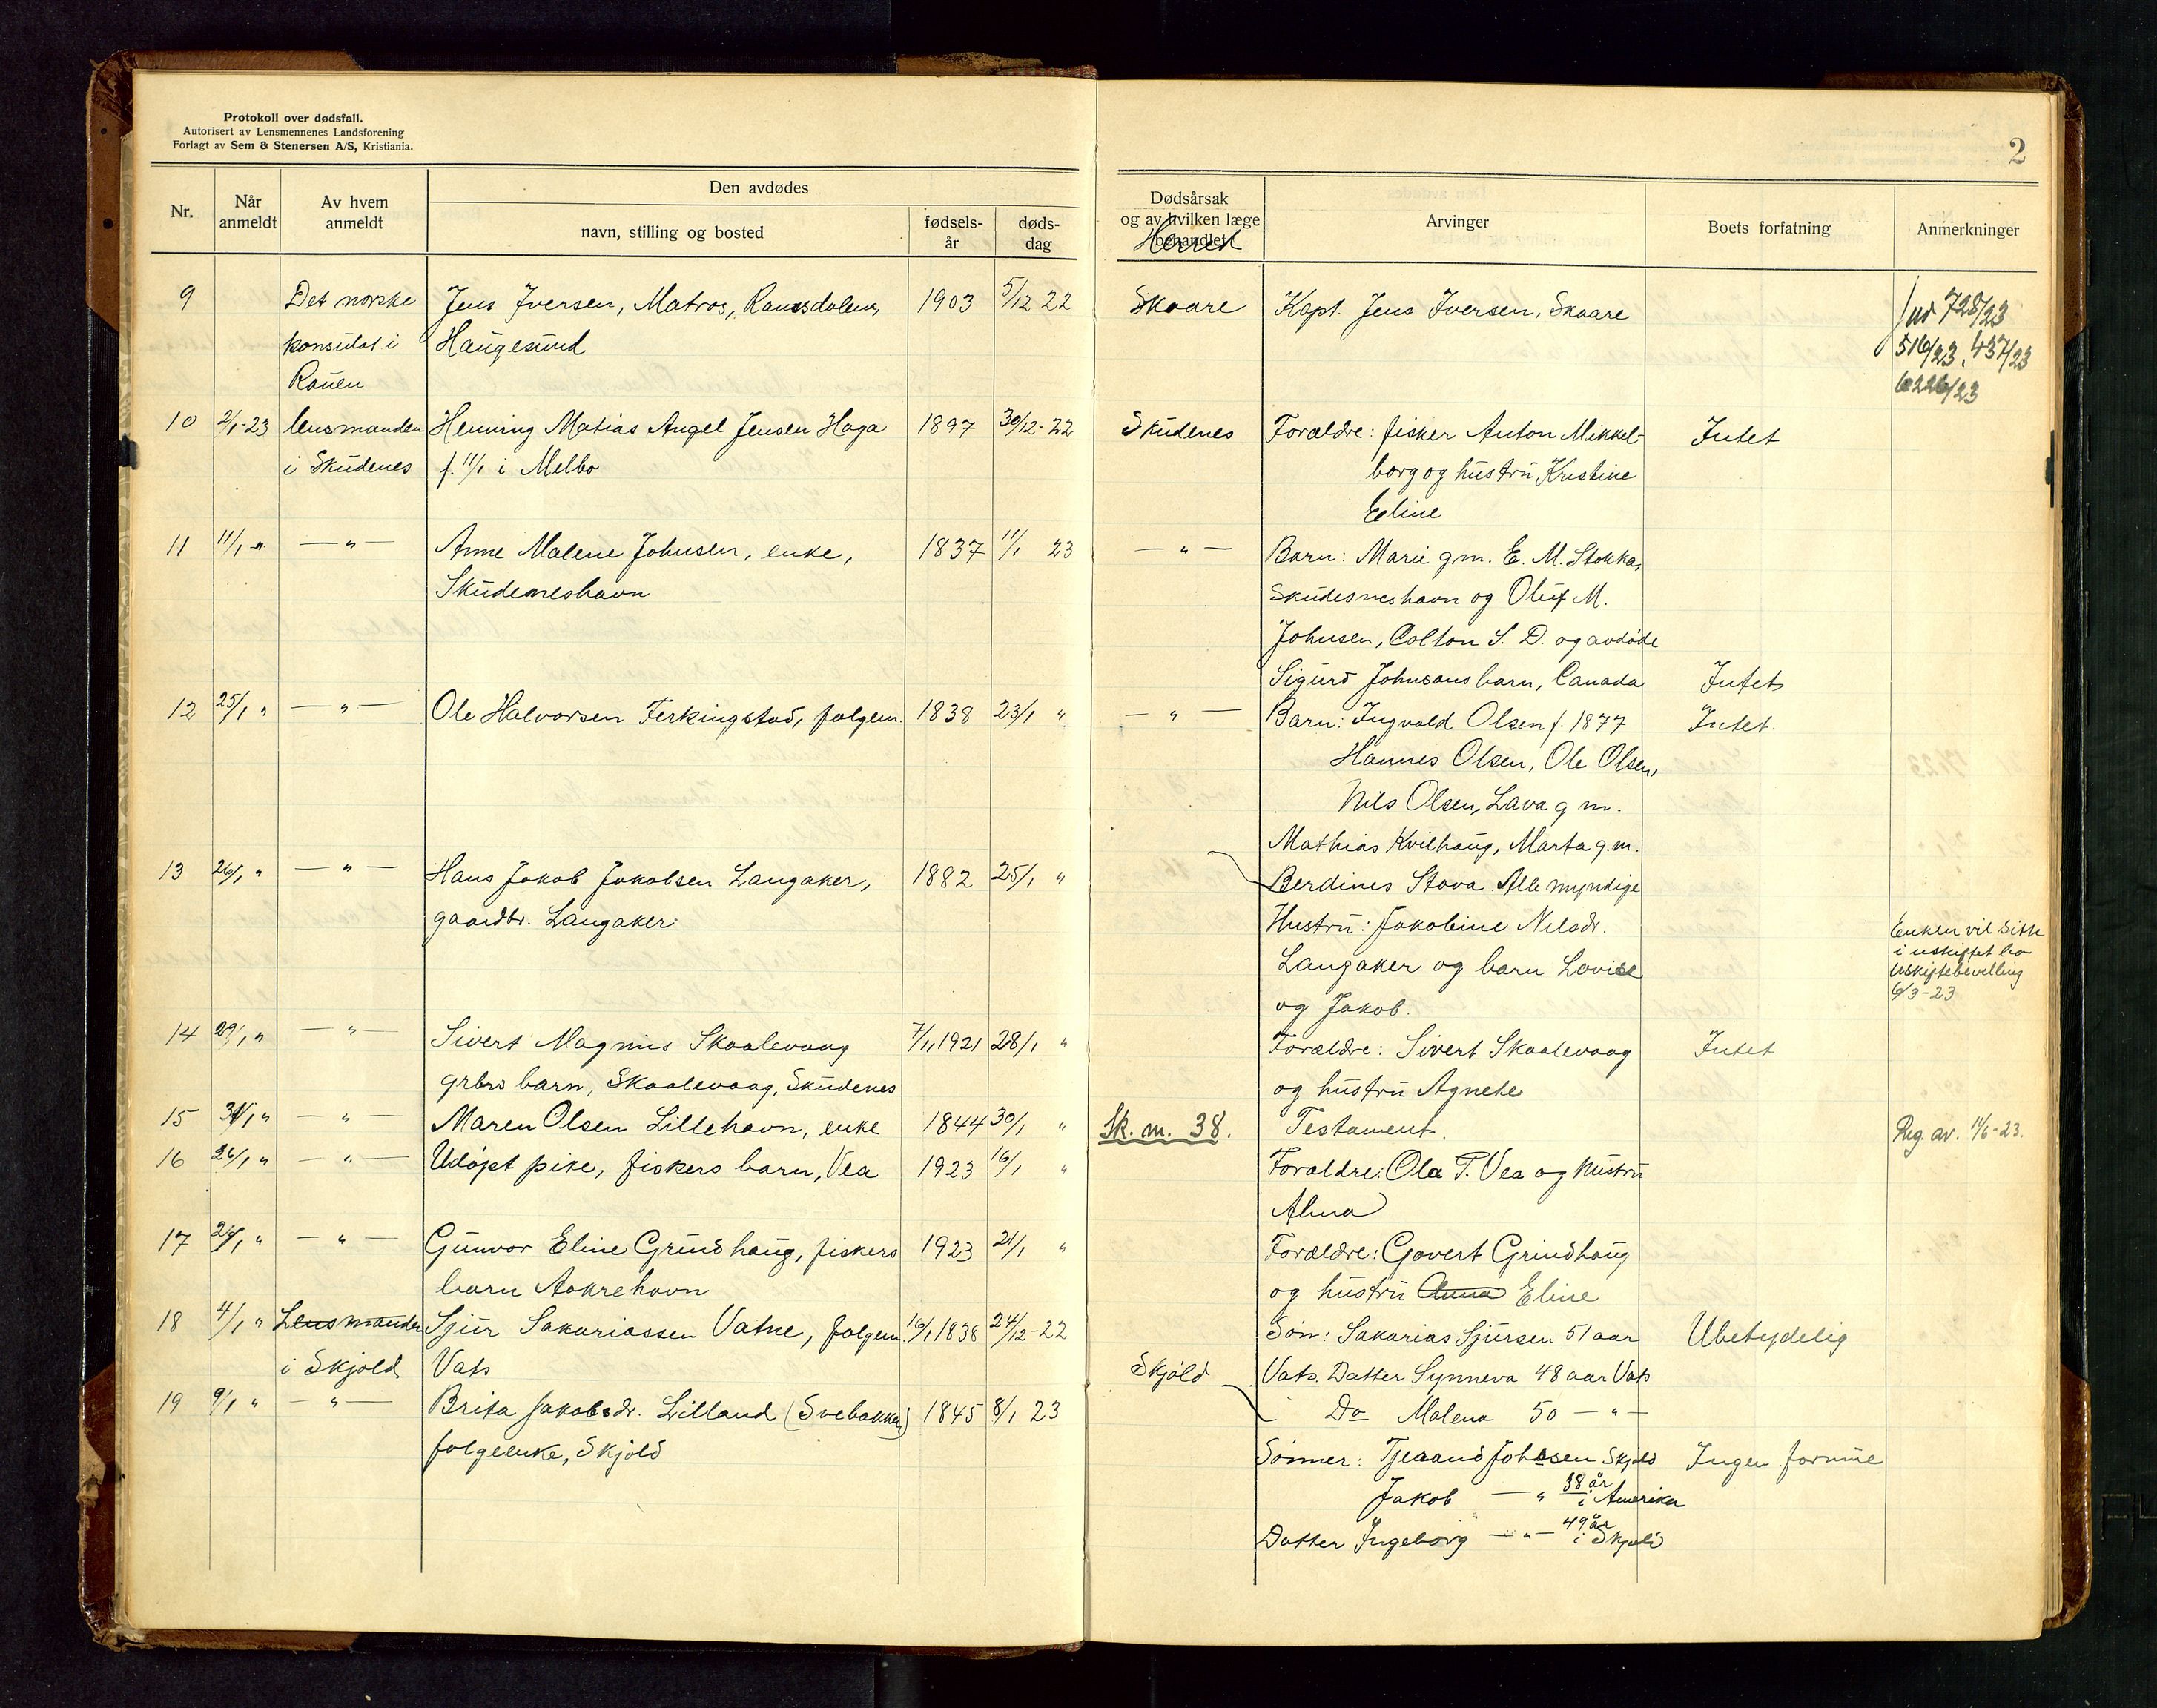 Protokoll over dødsfall.
Autorisert av Lensmennenes Landsforening
Forlagt av Sem & Stenersen A/S, Kristiania.
2
Nr.
Når anmeldt
Av hvem anmeldt
Den avdødes
navn, stilling og bosted
fødsels-år
døds-dag
Dødsårsak
og av hvilken læge
behandlet
Herred
Arvinger
Boets forfatning
Anmerkninger
9 Det norske Jens Iversen, Matros, 1903 5/12 22 Skaare Kapt. Jens Iversen, Skaare Jnr 728/23
konsulat i Haugesund 516/23. 437/23
Rouen /23
10 2/1-23 lensmanden Henning Matias Angel Jensen Haga 1897 30/12-22 Skudenes Forældre: fisker Anton Mikkel- Intet
i Skudenes f. 11/1 i Melbo borg og hustru Kristine
Eline
11 11/1 " — " — Anne Malene Johnsen, enke, 1837 11/1 23 — " — Barn: Marie g.m. E. M. Stokka,
Skudeneshavn Skudesneshavn og Oluf M.
Johnsen, Colton S. D. og avdøde
Sigurd Johnsons barn, Canada Intet
12 25/1 " — " — Ole Halvorsen Ferkingstad, følgem. 1838 23/1 " — " — Barn: Ingvald Olsen f. 1877 Intet.
Hannes Olsen, Ole Olsen,
Nils Olsen, Lava g m.
Mathias Kvilhaug, Marta g.m.
13 26/1 " — " — Hans Jakob Jakobsen Langaker, 1882 25/1 " Berdines Stava. Alle myndige
gaardbr. Langaker. Hustru: Jakobine Nilsdr. Enken vil sitte
Langaker og barn Lovise i uskiftet bo
og Jakob. Uskiftebevilling
6/3-23
14 29/1 " — " — Sivert Magnus Skaalevaag 7/11 1921 28/1 " Forældre: Sivert Skaalevaag Intet
grbrs barn, Skaalevaag, Skudenes og hustru Agnete
15 31/1 " — " — Maren Olsen Lillehavn, enke 1844 30/1 " Sk. m. 38. Testament. Reg. av. 11/6-23.
16 26/1 " — " — Udøpt pike, fiskers barn, Vea 1923 16/1 " Forældre: Ola T. Vea og hustru
Alma
17 24/1 " — " — Gunvor Eline Grindhaug, fiskers 1923 21/1 " Forældre: Govert Grindhaug
barn Aakrehavn og hustru Anna Eline
18 4/1 " Lensmanden Sjur Sakariassen Vatne, følgem. 16/1 1838 24/12-22 Søn: Sakarias Sjursen 51 aar Ubetydelig
i Skjold Vats Skjold Vats. Datter Synneva 48 aar Vats
19 9/1 " — " — Brita Jakobsdr. Lilland (Svebakken) 1845 8/1 23 Do Malena 50 — " —
følgeenke, Skjold Sønner: Tjerand Johnsen Skjold Ingen formue
Jakob — " 38 år i Amerika
Datter Ingeborg — " — 49 år i Skjold